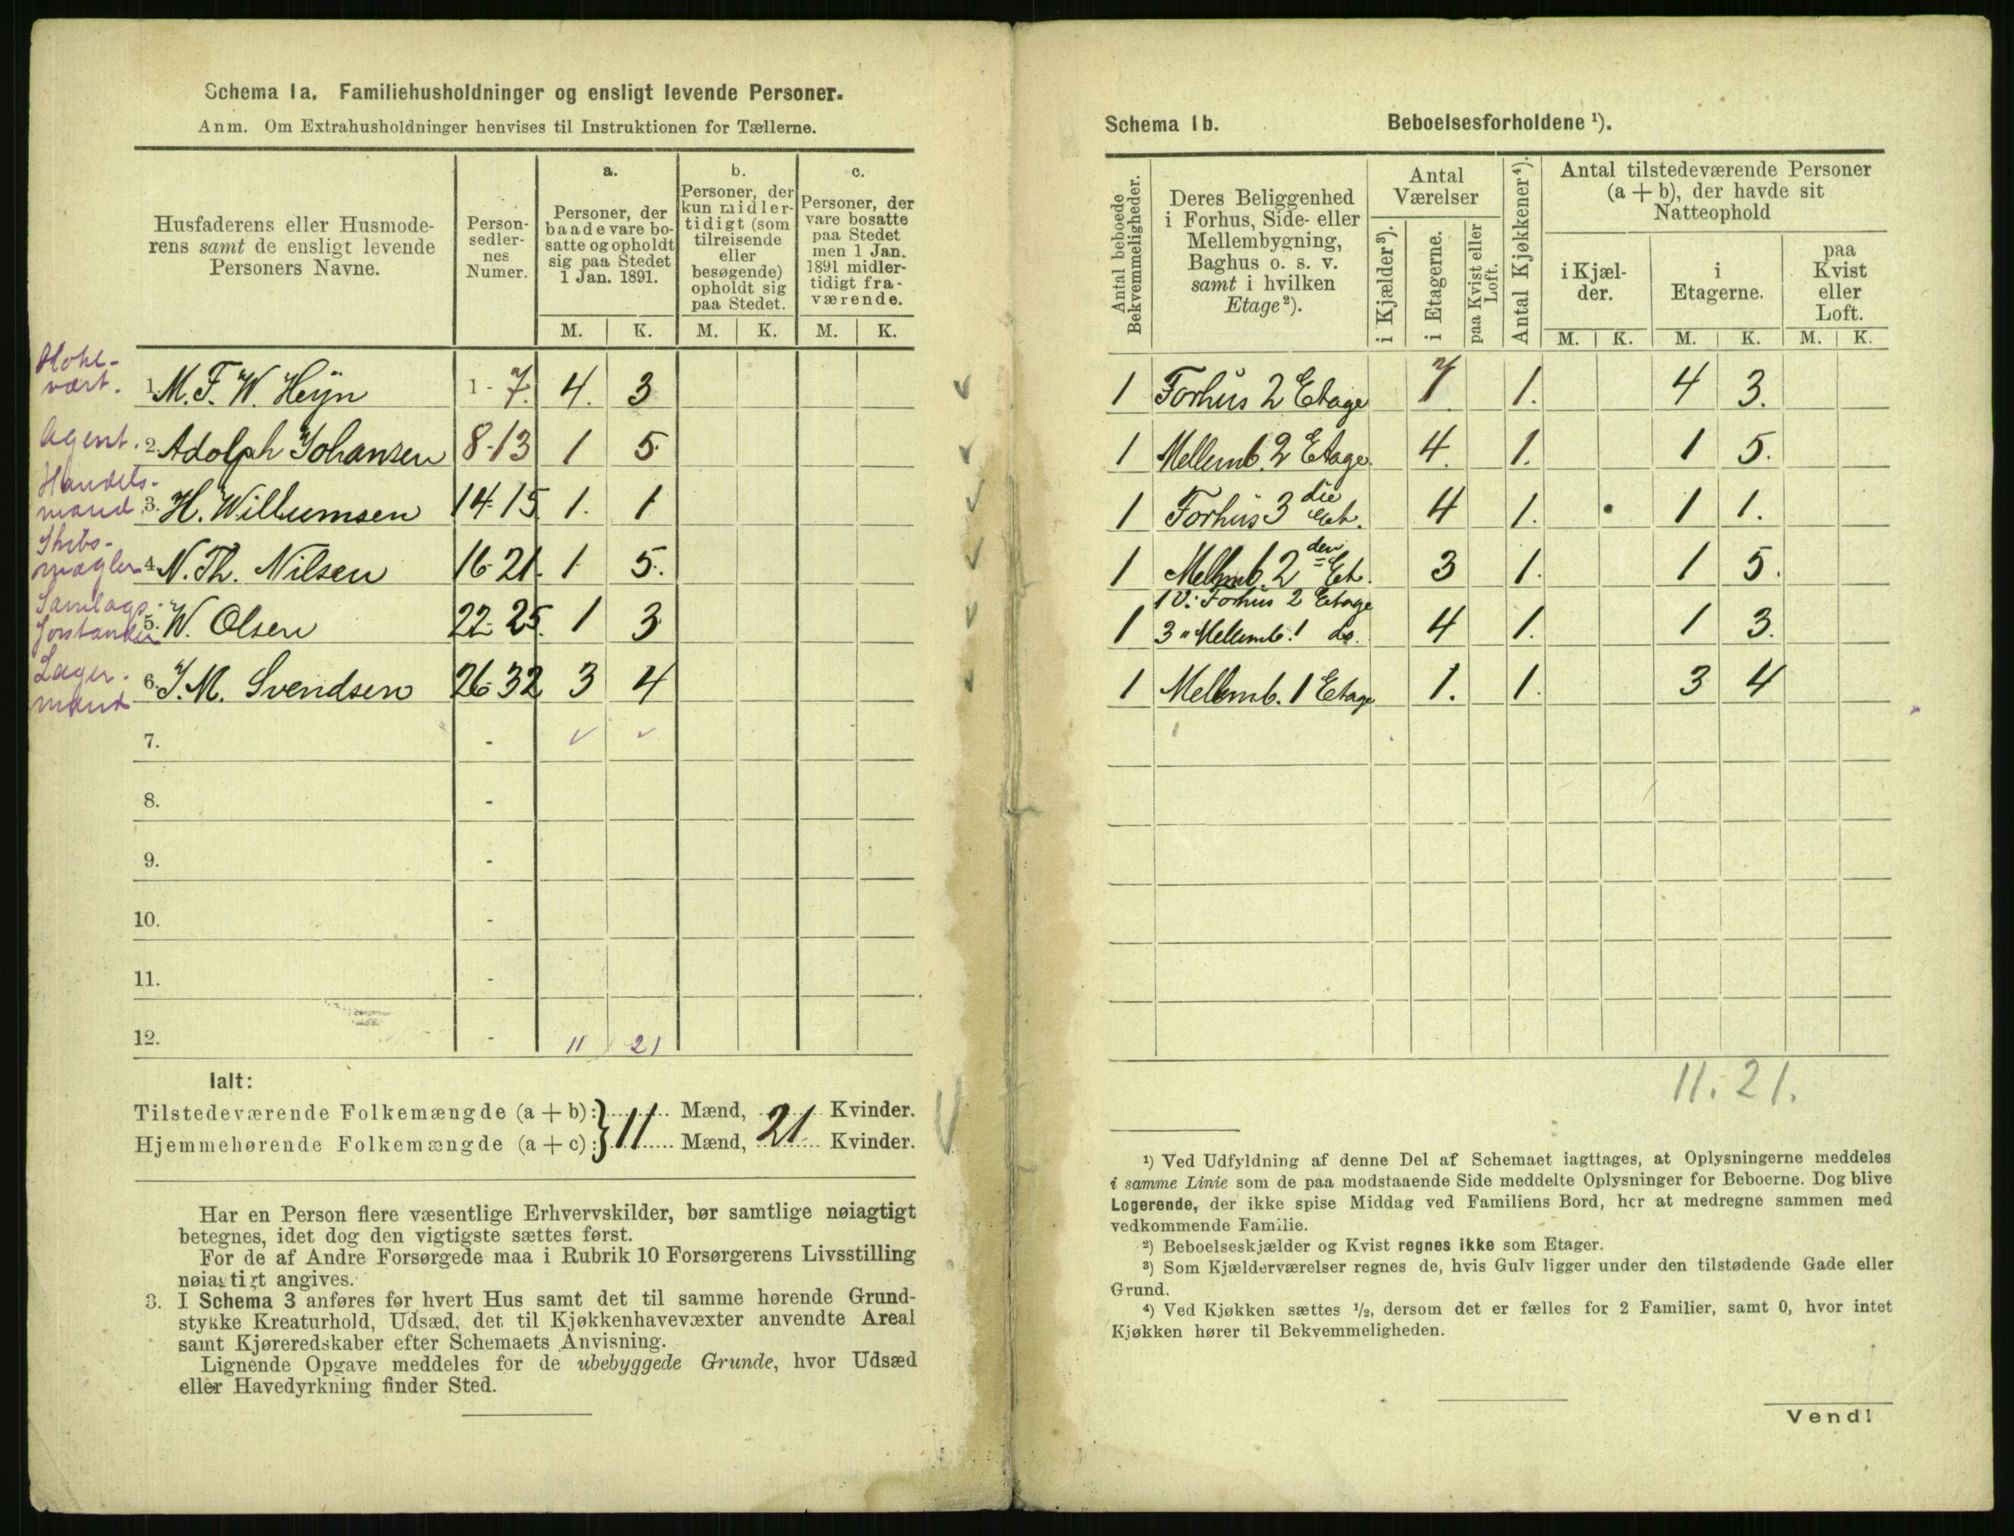 Schema 1a. Familiehusholdninger og ensligt levende Personer.
Anm. Om Extrahusholdninger henvises til Instruktionen for Tællerne.
Husfaderens eller Husmoderens samt de ensligt levende Personers Navne.
Personsedlernes Numer.
a. Personer, der baade vare bosatte og opholdt sig paa Stedet 1 Jan. 1891.
b. Personer, der kun midlertidigt (som tilreisende eller besøgende) opholdt sig paa Stedet.
c. Personer, der vare bosatte paa Stedet men 1 Jan. 1891 midlertidigt fraværende.
M. K. M. K. M. K.
vært. 1. M. F. W. Heijn 1 - 7. 4. 3
Agent. 2. Adolph Johansen 8-13 1 5.
Handelsmand. 3. H. Willumsen 14-15. 1. 1
Skibsmægler 4. N. Th. Nilsen 16-21. 1 5.
Samlagsforstander 5. W. Olsen 22-25. 1 3
Lagermand 6. J. M. Svendsen 26-32 3 4
7. -
8. -
9. -
10. -
11. -
12. - 11 21
Ialt:
Tilstedeværende Folkemængde (a + b): Mænd, Kvinder.
Hjemmehørende Folkemængde (a + c): } 11 Mænd, 21 Kvinder.
Har en Person flere væsentlige Erhvervskilder, bør samtlige nøiagtigt
betegnes, idet dog den vigtigste sættes først.
For de af Andre Forsørgede maa i Rubrik 10 Forsørgerens Livsstilling
nøiagtigt angives.
3. I Schema 3 anføres for hvert Hus samt det til samme hørende Grund-
stykke Kreaturhold, Udsæd, det til Kjøkkenhavevæxter anvendte Areal
samt Kjøreredskaber efter Schemaets Anvisning.
Lignende Opgave meddeles for de ubebyggede Grunde, hvor Udsæd
eller Havedyrkning finder Sted.
Schema 1b. Beboelsesforholdene ¹).
Antal beboede Bekvemmeligheder.
Deres Beliggenhed i Forhus, Side- eller Mellembygning, Baghus o. s. v. samt i hvilken Etage²).
Antal Værelser
i Kjælder³). i Etagerne. paa Kvist eller Loft.
Antal Kjøkkener⁴).
Antal tilstedeværende Personer (a + b), der havde sit Natteophold
i Kjælder. i Etagerne. paa Kvist eller Loft.
M. K. M. K. M. K.
1 Forhus 2 Etage 7 1. 4 3.
1 Mellemb. 2 Etage. 4. 1. 1 5.
1 Forhus 3 die Et. 4 1. 1 1.
1 Mellemb. 2 den Et. 3 1. 1 5.
1 V. Forhus 2 Etage
1 3 " Mellemb. 1 do. 4 1. 1 3.
1 Mellemb. 1 Etage 1. 1. 3 4
11. 21.
¹) Ved Udfyldning af denne Del af Schemaet iagttages, at Oplysningerne meddeles
i samme Linie som de paa modstaaende Side meddelte Oplysninger for Beboerne. Dog blive
Logerende, der ikke spise Middag ved Familiens Bord, her at medregne sammen med
vedkommende Familie.
²) Beboelseskjælder og Kvist regnes ikke som Etager.
³) Som Kjælderværelser regnes de, hvis Gulv ligger under den tilstødende Gade eller
Grund.
⁴) Ved Kjøkken sættes ½, dersom det er fælles for 2 Familier, samt 0, hvor intet
Kjøkken hører til Bekvemmeligheden.
Vend!